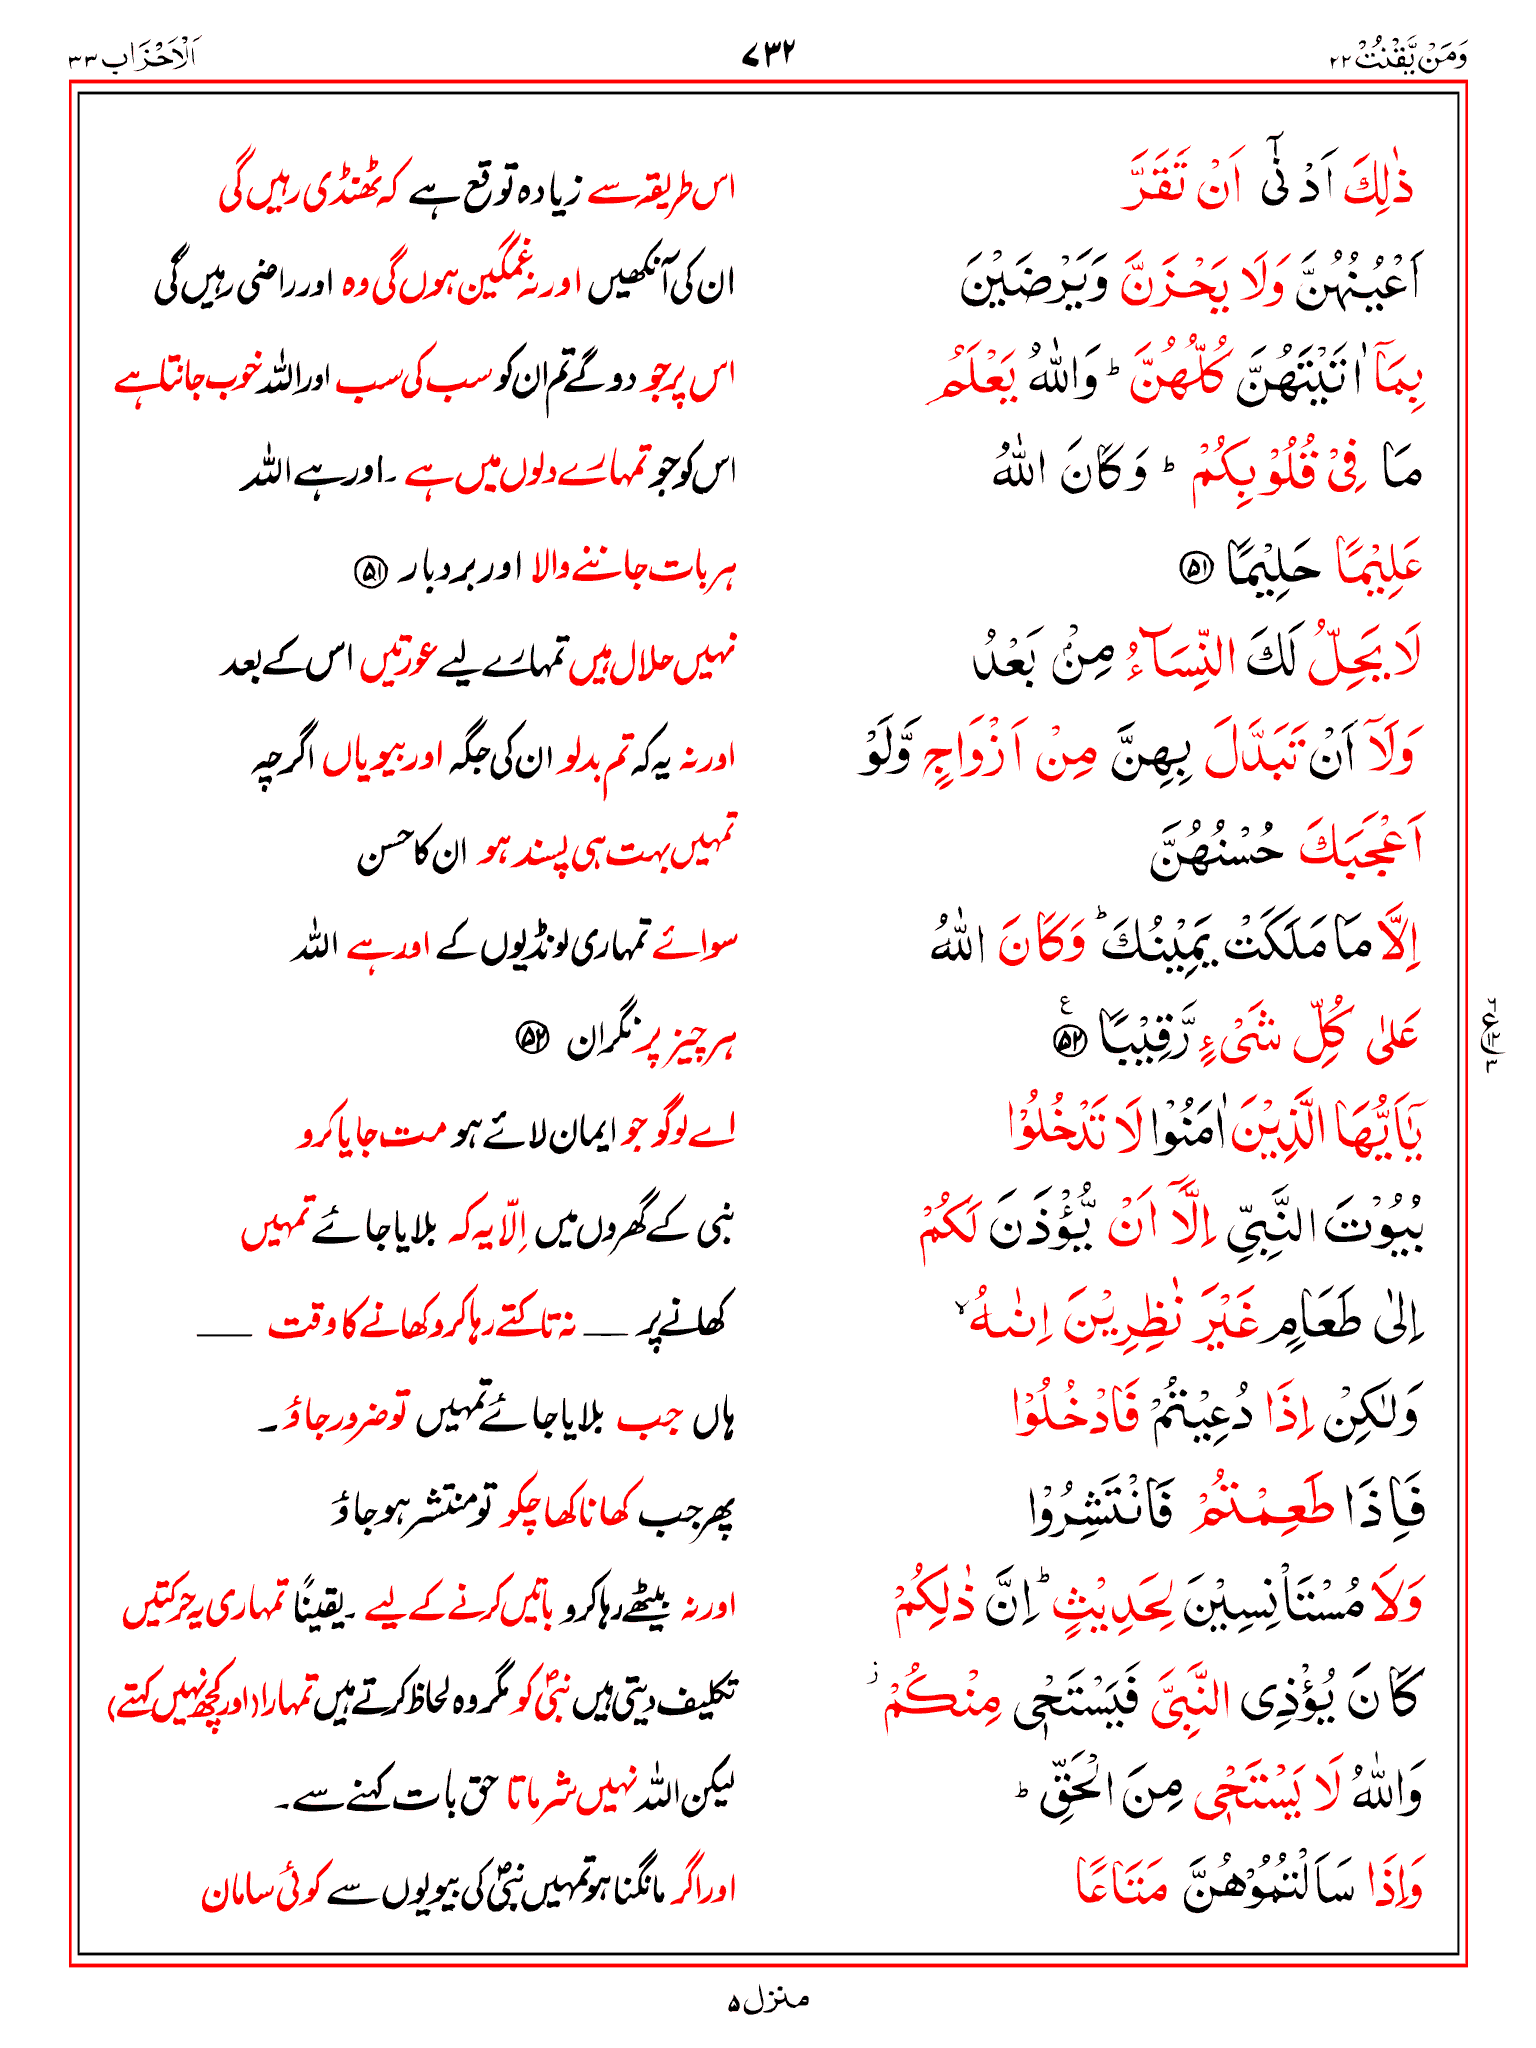 وَمَنْ يَّقْنُتْ ۲۲ ۷۳۲ اَلْاَحْزَاب ۳۳
ذٰلِكَ اَدْنٰٓى اَنْ تَقَرَّ اس طریقہ سے زیادہ توقع ہے کہ ٹھنڈی رہیں گی
اَعْيُنُهُنَّ وَلَا يَحْزَنَّ وَيَرْضَيْنَ ان کی آنکھیں اور نہ غمگین ہوں گی وہ اور راضی رہیں گی
بِمَآ اٰتَيْتَهُنَّ كُلُّهُنَّ ؕ وَاللّٰهُ يَعْلَمُ اس پر جو دو گے تم ان کو سب کی سب اور اللہ خوب جانتا ہے
مَا فِيْ قُلُوْبِكُمْ ؕ وَكَانَ اللّٰهُ اس کو جو تمہارے دلوں میں ہے ۔اور ہے اللہ
عَلِيْمًا حَلِيْمًا ۵۱ ہر بات جاننے والا اور بردبار ۵۱
لَا يَحِلُّ لَكَ النِّسَآءُ مِنْۢ بَعْدُ نہیں حلال ہیں تمہارے لیے عورتیں اس کے بعد
وَلَآ اَنْ تَبَدَّلَ بِهِنَّ مِنْ اَزْوَاجٍ وَّلَوْ اور نہ یہ کہ تم بدلو ان کی جگہ اور بیویاں اگرچہ
اَعْجَبَكَ حُسْنُهُنَّ تمہیں بہت ہی پسند ہو ان کا حسن
اِلَّا مَا مَلَكَتْ يَمِيْنُكَ ؕ وَكَانَ اللّٰهُ سوائے تمہاری لونڈیوں کے اور ہے اللہ
عَلٰى كُلِّ شَيْءٍ رَّقِيْبًا ۵۲ ع ہر چیز پر نگران ۵۲
يٰٓاَيُّهَا الَّذِيْنَ اٰمَنُوْا لَا تَدْخُلُوْا اے لوگو جو ایمان لائے ہو مت جایا کرو
بُيُوْتَ النَّبِيِّ اِلَّآ اَنْ يُّؤْذَنَ لَكُمْ نبی کے گھروں میں اِلّا یہ کہ بلایا جائے تمہیں
اِلٰى طَعَامٍ غَيْرَ نٰظِرِيْنَ اِنٰىهُ ۙ کھانے پر __ نہ تاکتے رہا کرو کھانے کا وقت __
وَلٰكِنْ اِذَا دُعِيْتُمْ فَادْخُلُوْا ہاں جب بلایا جائے تمہیں تو ضرور جاؤ ۔
فَاِذَا طَعِمْتُمْ فَانْتَشِرُوْا پھر جب کھانا کھا چکو تو منتشر ہو جاؤ
وَلَا مُسْتَاْنِسِيْنَ لِحَدِيْثٍ ؕ اِنَّ ذٰلِكُمْ اور نہ بیٹھے رہا کرو باتیں کرنے کے لیے ۔یقیناً تمہاری یہ حرکتیں
كَانَ يُؤْذِى النَّبِيَّ فَيَسْتَحْيٖ مِنْكُمْ ؗ تکلیف دیتی ہیں نبیؐ کو مگر وہ لحاظ کرتے ہیں تمہارا (اور کچھ نہیں کہتے)
وَاللّٰهُ لَا يَسْتَحْيٖ مِنَ الْحَقِّ ؕ لیکن اللہ نہیں شرماتا حق بات کہنے سے۔
وَاِذَا سَاَلْتُمُوْهُنَّ مَتَاعًا اور اگر مانگنا ہو تمہیں نبیؐ کی بیویوں سے کوئی سامان
منزل ۵